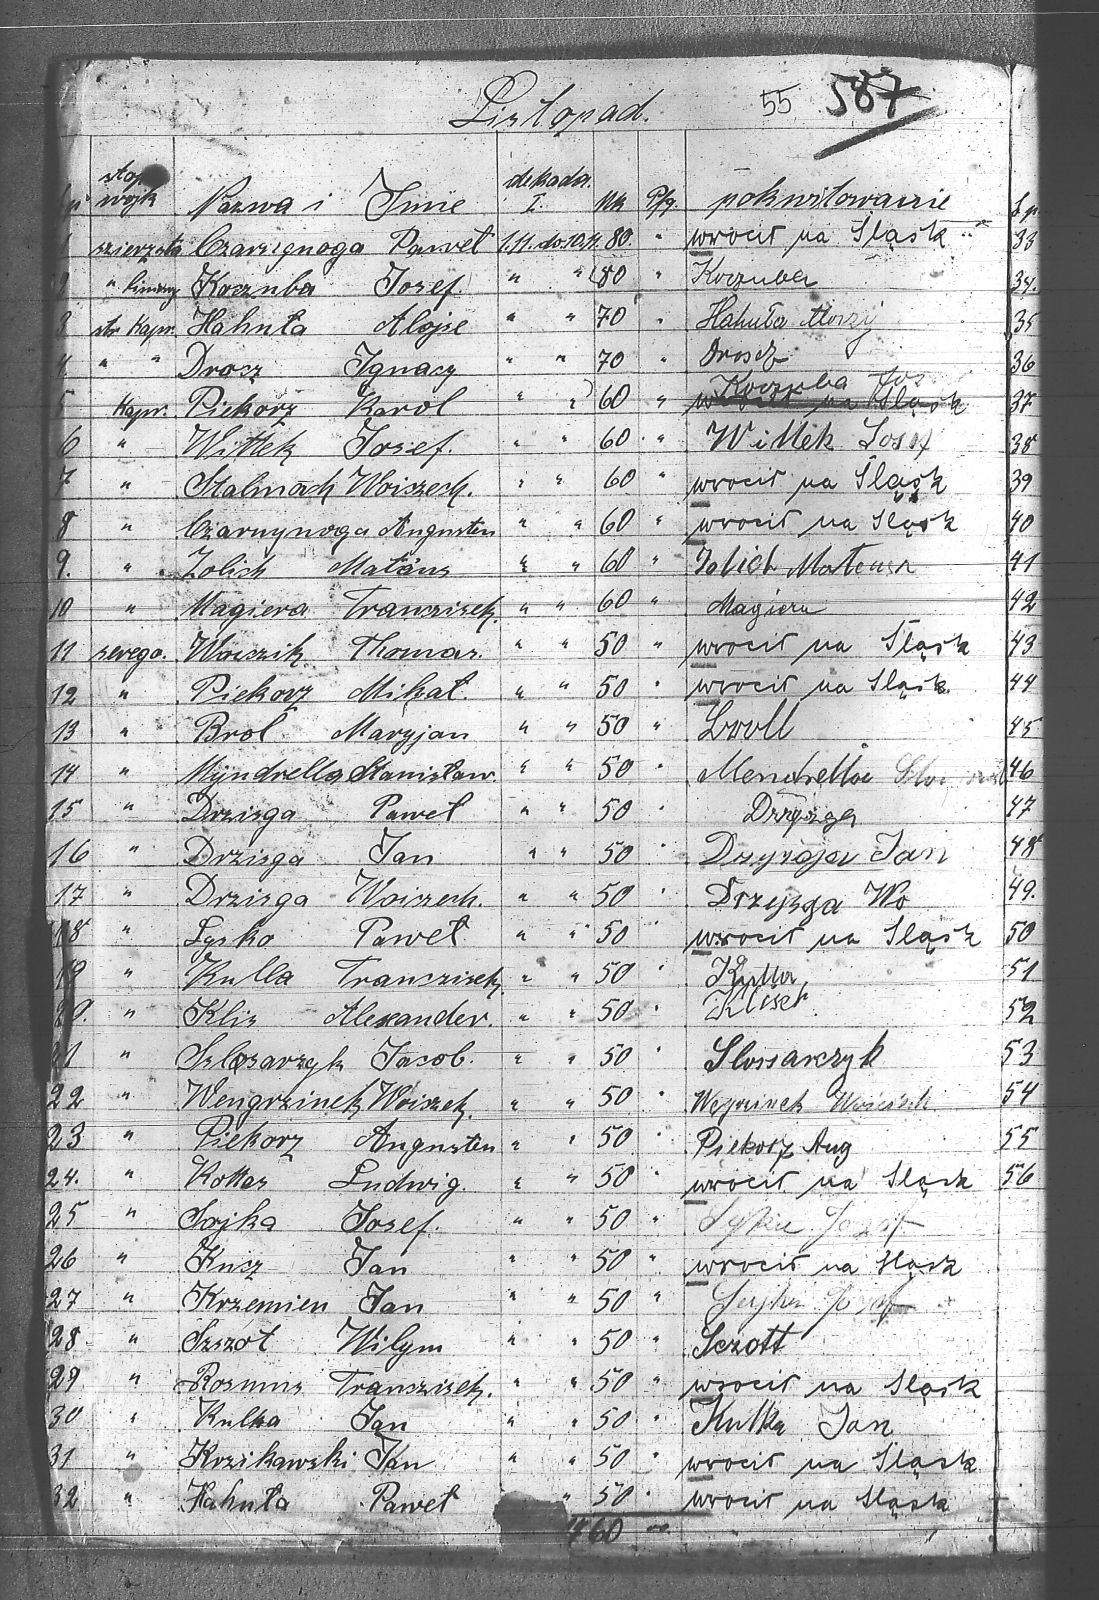 Listopad. 55 587
Lp stop wojk Nazwa i Imie dekada I. Mk Pfg. pokwitowanie Lp
1 sierzsta Czarnynoga Paweł 1.11. do 10.11. 80. " wrócił na Śląsk 33
2 " Koczuba Josef " " 80 " Koczuba 34.
3 str Kapr. Hahuła Alojse " " 70 " Hahuła Alojzy 35
4 " " Drosz Ignacy " " 70 " Drosdz 36
5 Kapr. Piekorz Karol " " 60 " Koczuba Jos 37
wrócił na Śląsk
6 " Wittek Josef. " " 60 " Wittek Josef 38
7 " Stalmach Woiszech. " " 60 " wrócił na Śląsk 39
8 " Czarnynoga Augusten " " 60 " wrócił na Śląsk 40
9. " Zolich Matäus " " 60 " Zolich Mateusz 41
10 " Magiera Francziszek. " " 60 " Magiera 42
11 szerego. Woiszik Thomas. " " 50 " wrócił na Śląsk 43
12 " Piekorz Michał. " " 50 " wrócił na Śląsk 44
13 " Brol Maryjan " " 50 " Broll 45
14 " Myndrella Stanisław. " " 50 " Mendrella 46
15 " Drzisga Paweł " " 50 " Drzyzga 47
16 " Drzisga Jan " " 50 " Dzyzga Jan 48
17 " Drzisga Woiszech. " " 50 " Drzejzga Wo 49.
18 " Lysko Paweł " " 50 " wrócił na Śląsk 50
19 " Kulla Francziszek " " 50 " Kulla 51
20. " Klis Alexander. " " 50 " Klisch 52
21 " Szlosarzyk Jacob. " " 50 " Slossarczyk 53
22 " Wengrzinek Woiszek. " " 50 " Węgrzinek Woiciech 54
23 " Piekorz Augusten " " 50 " Piekorz Aug 55
24. " Kottas Ludwig. " " 50 " wrócił na Śląsk 56
25 " Sojka Josef. " " 50 " Józef
26 " Kusz Jan " " 50 " wrócił na Śląsk
27 " Krzemien Jan " " 50 "
28 " Szszot Wilym " " 50 " Sczott
29 " Rosmus Francziszek. " " 50 " wrócił na Śląsk
30 " Kulka Jan " " 50 " Kulka Jan
31 " Krzikawski Jan " " 50 " wrócił na Śląsk
32 " Hahuła Paweł " 50 " wrócił na Śląsk
60